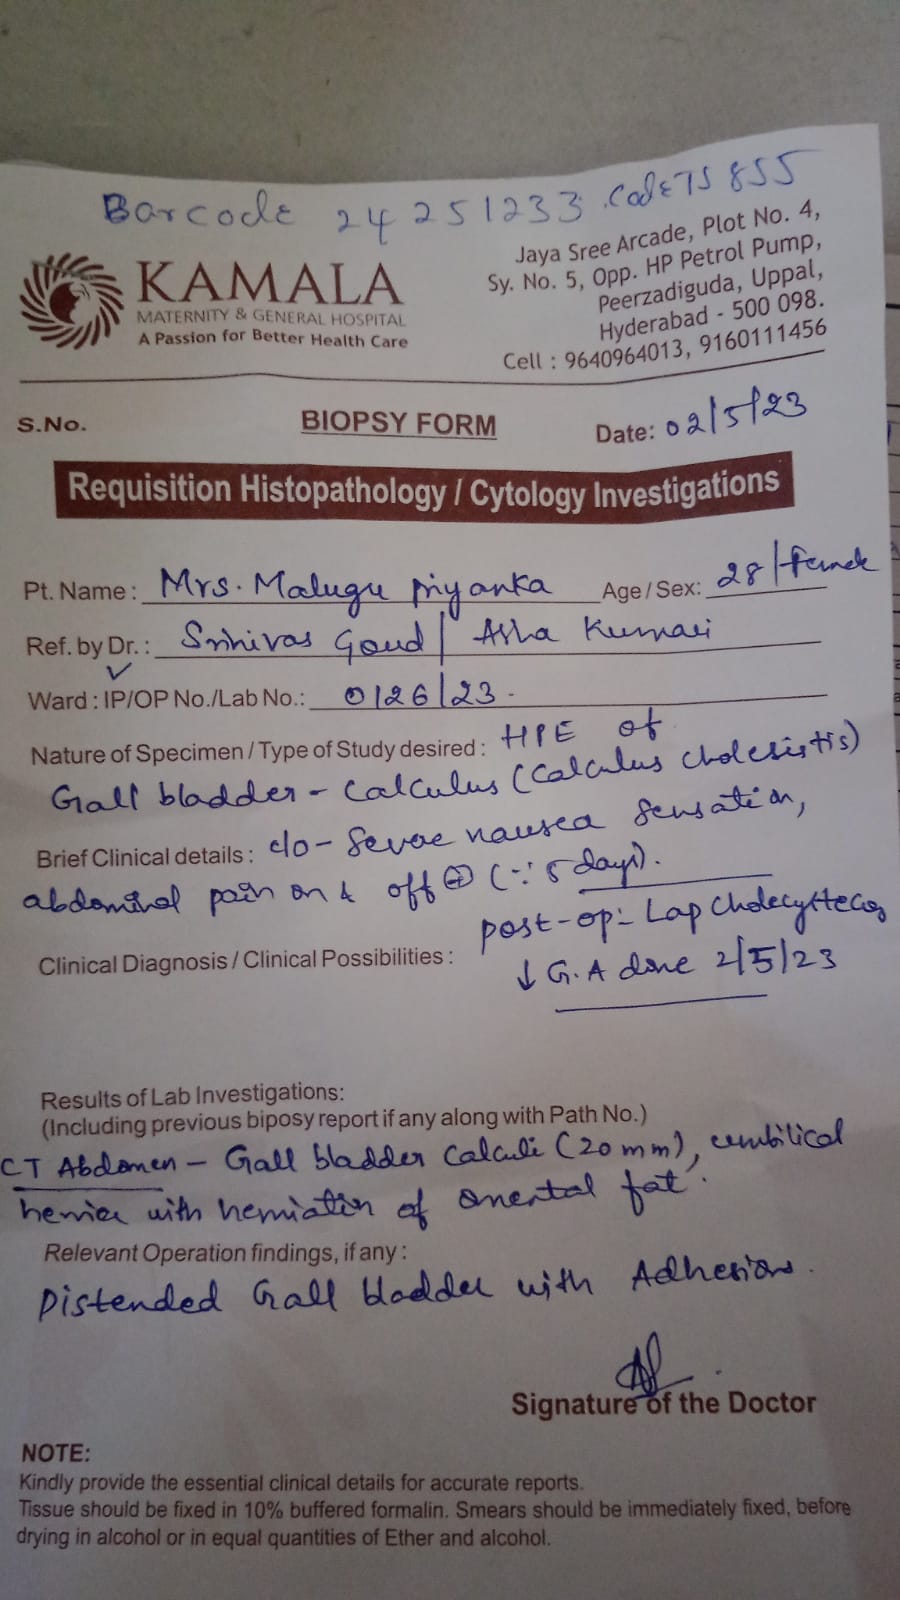 Barcode 24251233 .Code TS 855
KAMALA
MATERNITY & GENERAL HOSPITAL
A Passion for Better Health Care
Jaya Sree Arcade, Plot No. 4,
Sy. No. 5, Opp. HP Petrol Pump,
Peerzadiguda, Uppal,
Hyderabad - 500 098.
Cell : 9640964013, 9160111456
S.No. BIOPSY FORM Date: 02/5/23
Requisition Histopathology / Cytology Investigations
Pt. Name : Mrs. Malugu Priyanka Age / Sex: 28/Female
Ref. by Dr. : Srinivas Goud / Asha Kumari
Ward : IP/OP No./Lab No.: 0126/23.
Nature of Specimen / Type of Study desired : HPE of
Gall bladder - calculus (calculus cholesistis)
Brief Clinical details : c/o - Severe nausea sensation,
abdominal pain on & off ⊕ (∵ 5 days).
Clinical Diagnosis / Clinical Possibilities : post-op:- Lap Cholecystectomy
↓ G.A done 2/5/23
Results of Lab Investigations:
(Including previous biposy report if any along with Path No.)
CT Abdomen - Gall bladder calculi (20mm), umbilical
hernia with herniation of omental fat.
Relevant Operation findings, if any :
Distended Gall bladder with Adhesions.
Signature of the Doctor
NOTE:
Kindly provide the essential clinical details for accurate reports.
Tissue should be fixed in 10% buffered formalin. Smears should be immediately fixed, before
drying in alcohol or in equal quantities of Ether and alcohol.